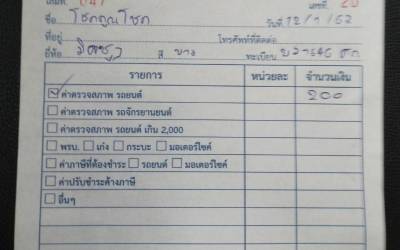 เล่มที่ 047 เลขที่ 20
ชื่อ โชคคูณโชค วันที่ 12/1/62
ที่อยู่ โทรศัพท์ที่ติดต่อ
ยี่ห้อ สี ขาว ทะเบียน
รายการ หน่วยละ จำนวนเงิน
ค่าตรวจสภาพ รถยนต์ 200
ค่าตรวจสภาพ รถจักรยานยนต์
ค่าตรวจสภาพ รถยนต์ เกิน 2,000
พรบ. เก๋ง กระบะ มอเตอร์ไซค์
ค่าภาษีที่ต้องชำระ รถยนต์ มอเตอร์ไซค์
ค่าปรับชำระค้างภาษี
อื่นๆ